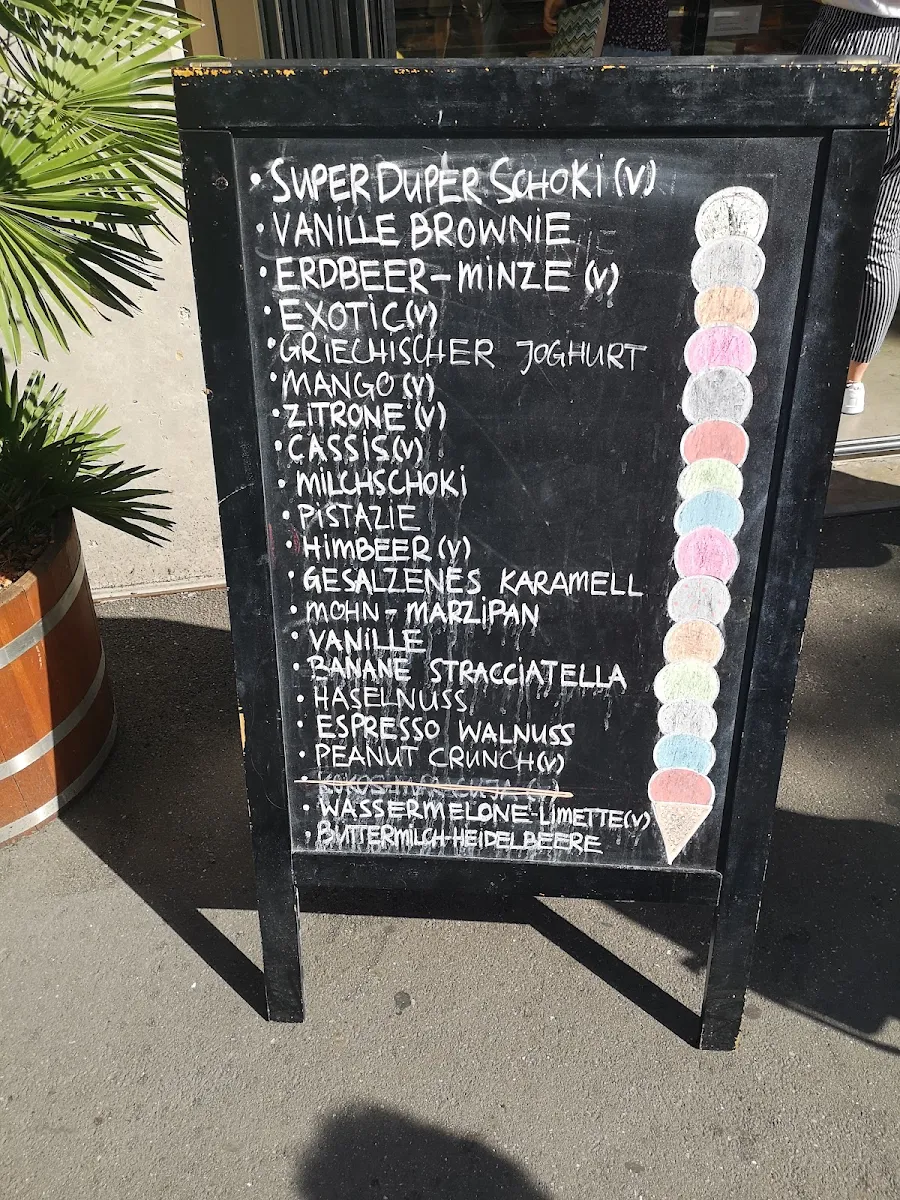 • SUPER DUPER SCHOKi (V)
• VANiLLE BROWNiE
• ERDBEER-MiNZE (V)
• EXOTiC (V)
• GRiECHiSCHER JOGHURT
• MANGO (V)
• ZiTRONE (V)
• CASSiS (V)
• MiLCHSCHOKi
• PiSTAZiE
• HiMBEER (V)
• GESALZENES KARAMELL
• MOHN-MARZiPAN
• VANiLLE
• BANANE STRACCiATELLA
• HASELNUSS
• ESPRESSO WALNUSS
• PEANUT CRUNCH (V)
• WASSERMELONE-LiMETTE (V)
• BUTTERMiLCH-HEiDELBEERE